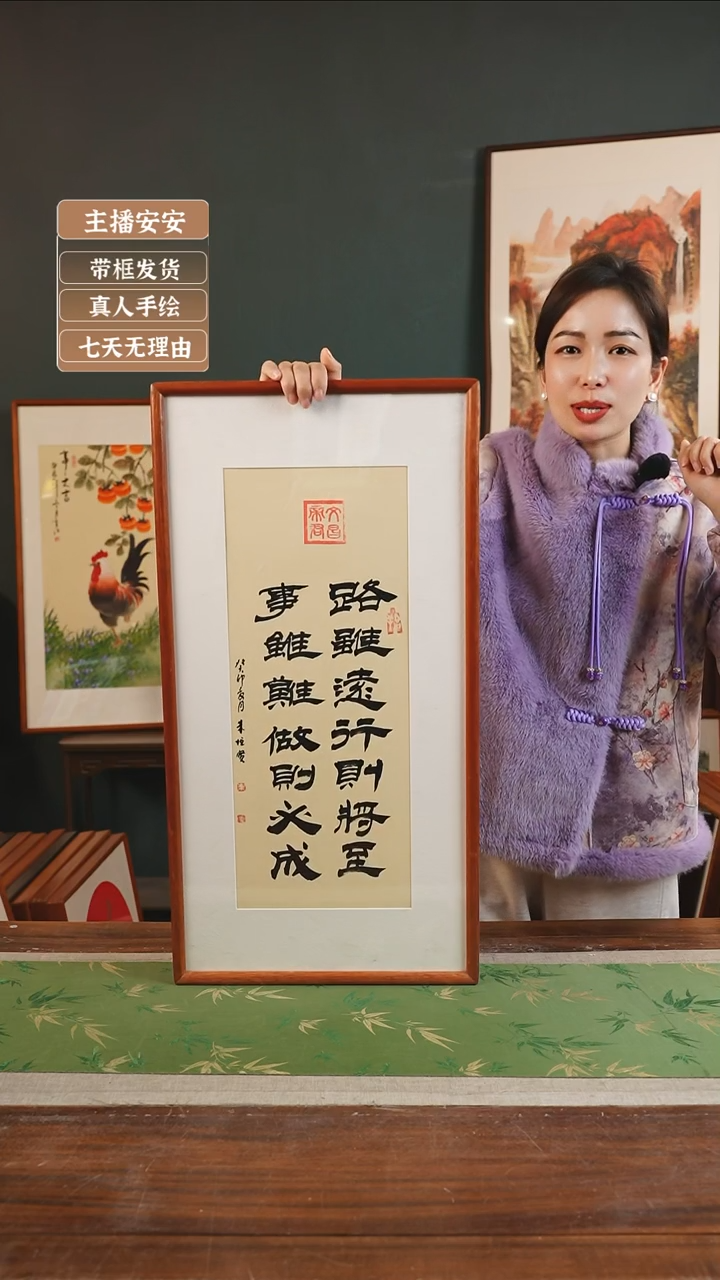 主播安安
带框发货
真人手绘
七天无理由
文昌帝君
路雖遠行則將至
事雖難做則必成
癸卯